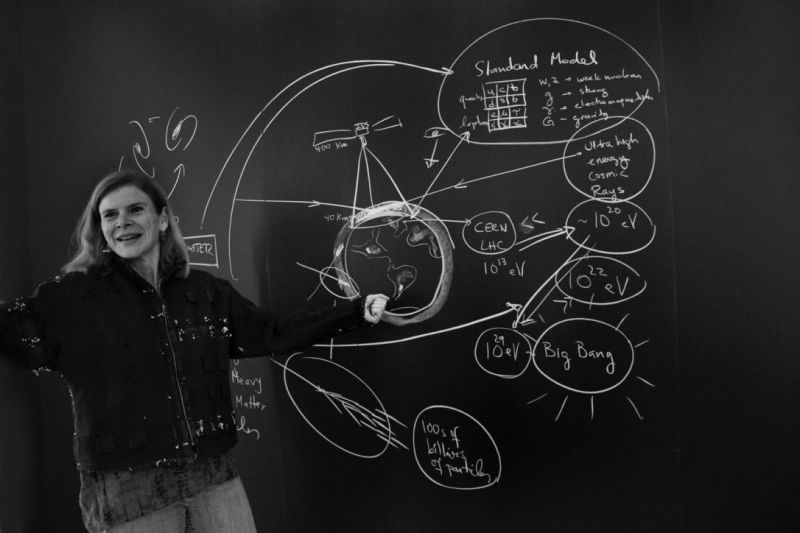 Standard Model
W, Z → weak nuclear
quarks u c b
g → strong
d s b
γ → electromagnetism
leptons e μ τ
G - gravity
ν ν ν
ISS
400 Km
Ultra high
energy
Cosmic
Rays
40 Km
CERN
LHC
10^13 eV
~ 10^20 eV
10^22 eV
10^29 eV
Big Bang
Heavy
Matter
100s of
billions
of particles